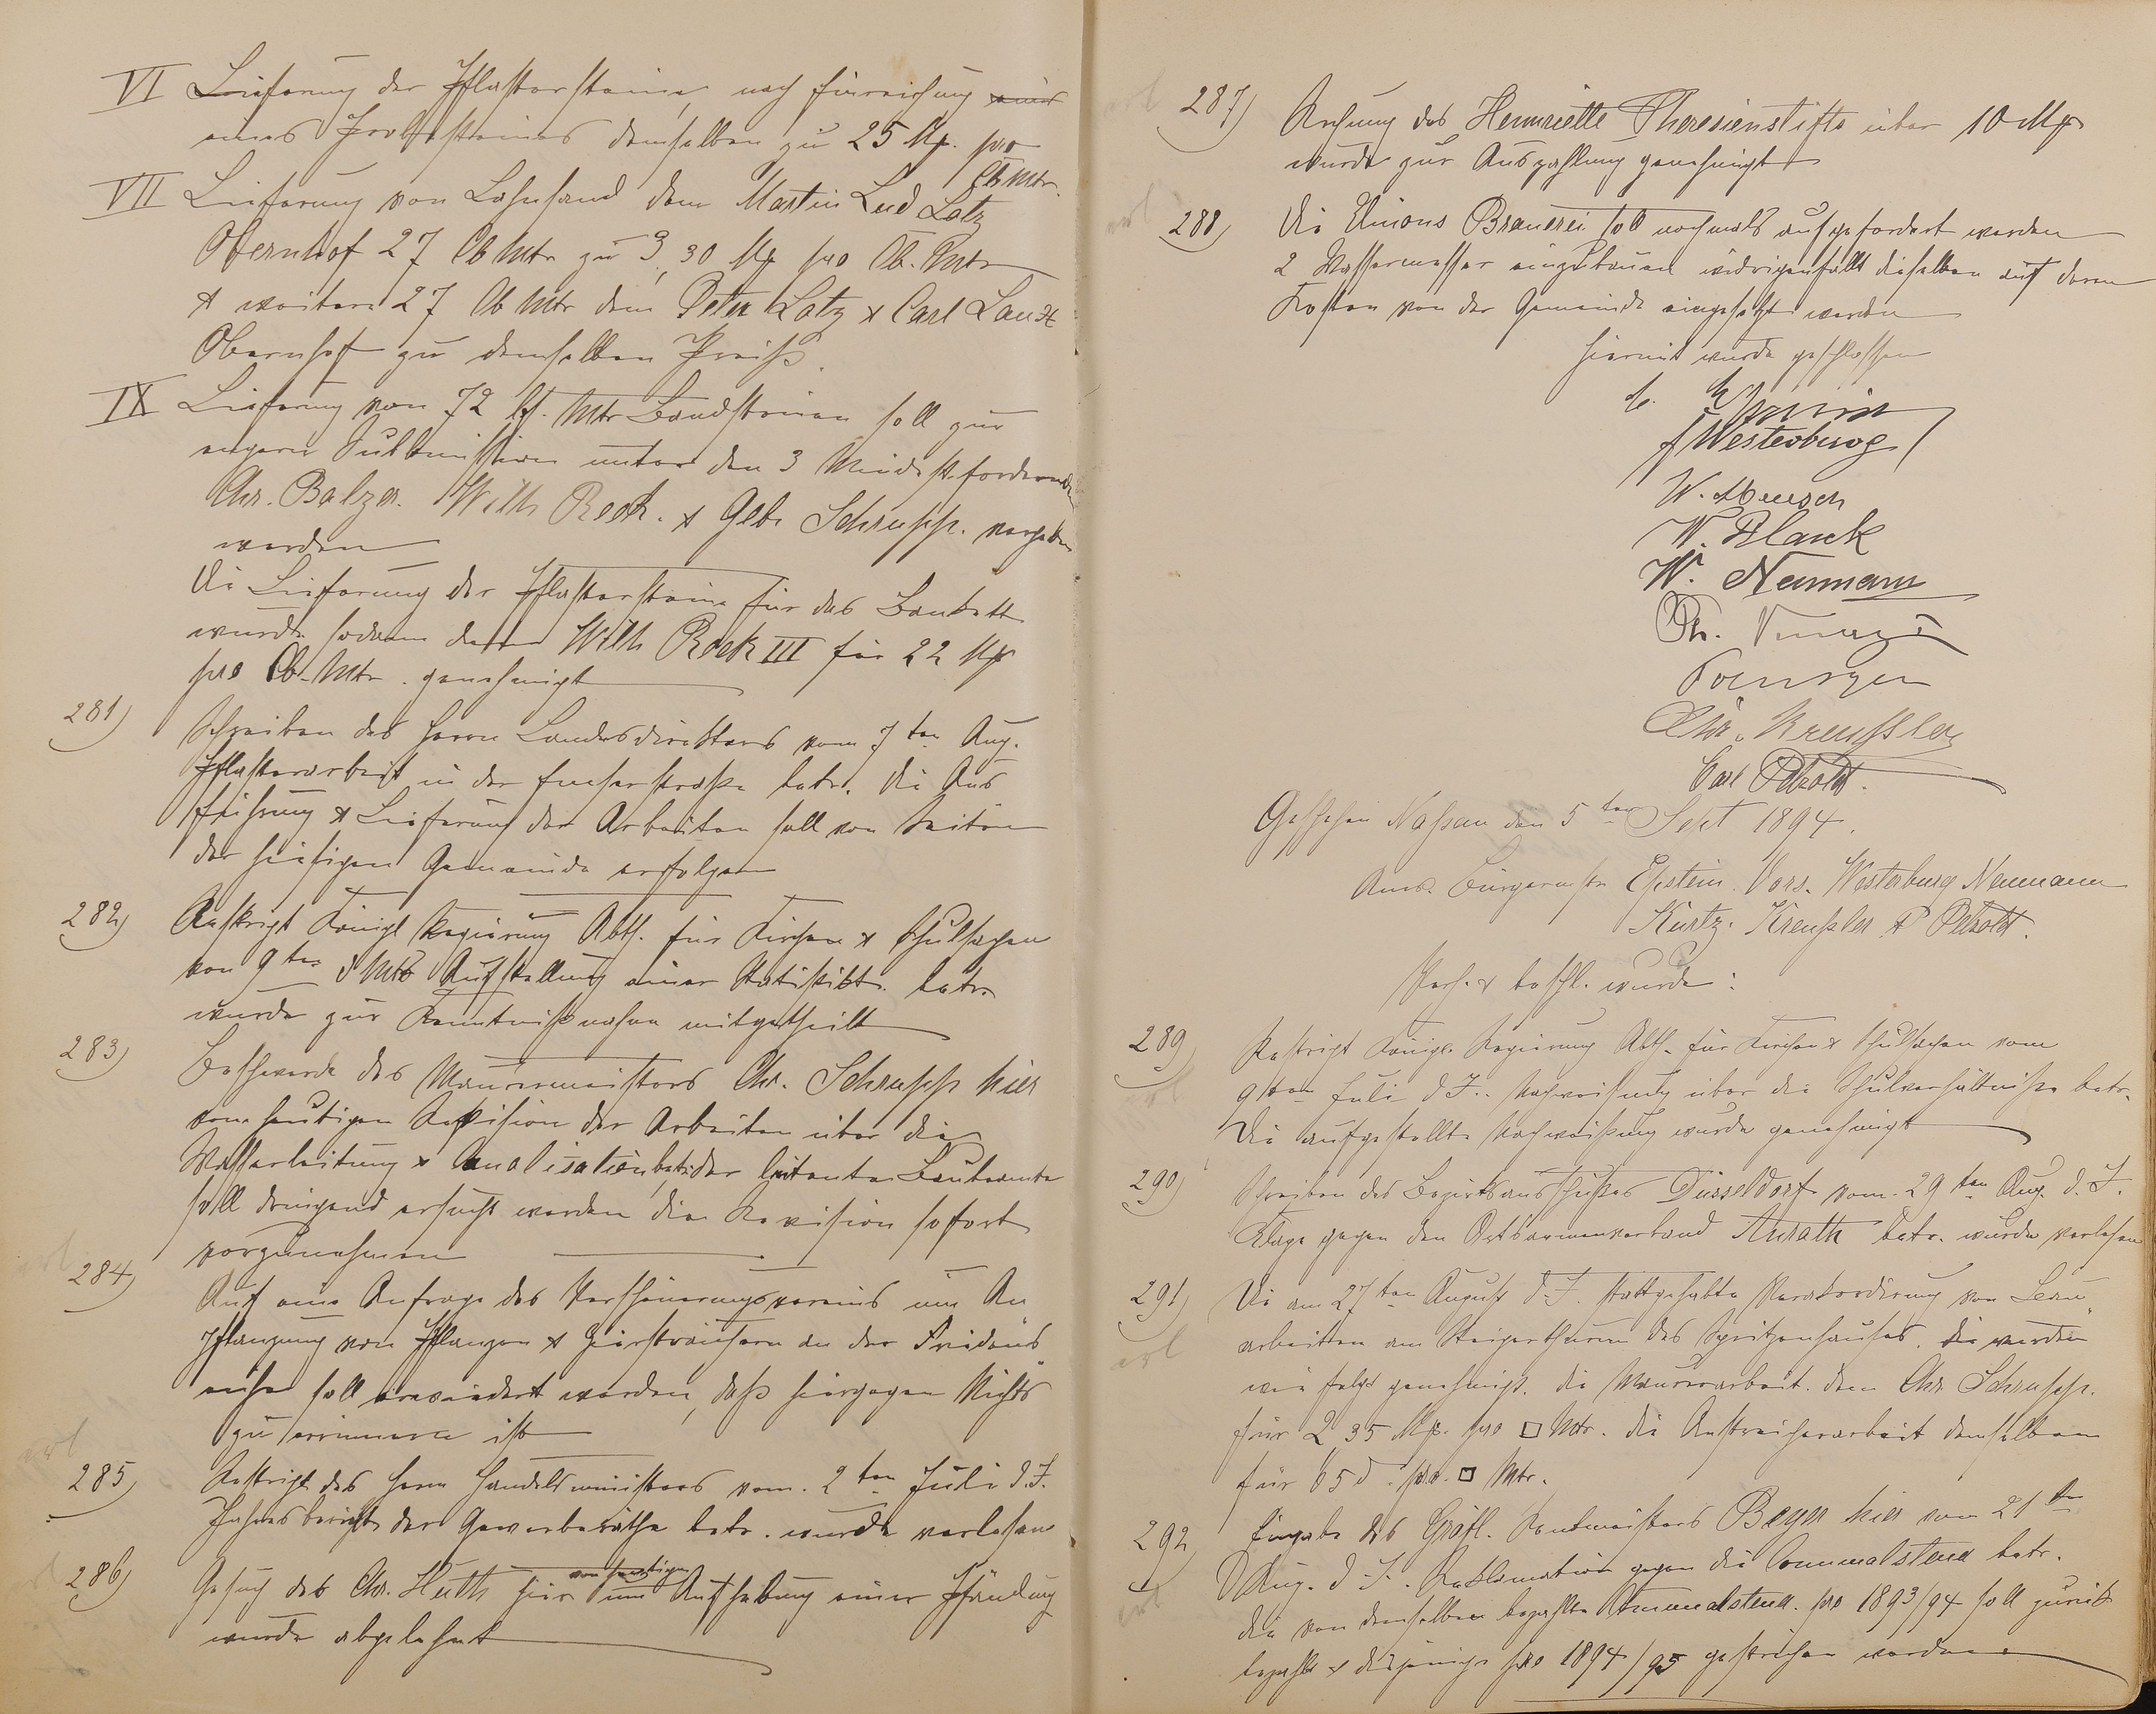 VI Lieferung der Pflastersteine, nach Einreichung eines
eines Probesteines demselben zu 25 Mk. pro
Cb Mtr.
VII Lieferung von Lahnsand dem Martin Lud Latz
Obernhof 27 Cb Mtr zu 3,30 Mk pro Cb. Mtr
& weitere 27 Cb Mtr dem Peter Latz & Carl Lautz
Obernhof zu demselben Preiß.
IX Lieferung von 72 lf. Mtr Bandsteinen soll zur
engern Submission unter den 3 Mindestfordernden
Chr. Balzer. Wilh Rock. & Gebr Schrupp. vergeben
werden
Die Lieferung der Pflastersteine für das Bankett
wurde sodann dem Wilh Rock III für 22 Mk
pro Cb-Mtr. genehmigt
281) Schreiben des Herrn Landesdirektors vom 7ten Aug.
Pflasterarbeit in der Emserstraße betr. Die Aus
führung & Lieferung der Arbeiten soll von Seiten
der hiesigen Gemeinde erfolgen
282) Reskript Königl Regierung Abth. für Kirchen & Schulsachen
von 9ten d Mts Aufstellung einer Statistik betr.
wurde zur Kenntnißnahme mitgetheilt
283) Beschwerde des Maurermeisters Chr. Schrupp hier
vom heutigen Revision der Arbeiten über die
Wasserleitung & Canalisation betr. der leitende Baubeamte
soll dringend ersucht werden die Revision sofort
vorzunehmen
284) Auf eine Anfrage des Verschönerungsvereins um An
pflanzung von Pflanzen & Ziersträuchern an der Friedens
eiche soll erwiedert werden, daß hiergegen Nichts
zu erinnern ist
285) Reskript des Herrn Handelsministers vom 2ten Juli d.J.
Jahresbericht der Gewerberäthe betr. wurde verlesen
286) Gesuch des Chr. Huth hier vom heutigen um Aufhebung einer Pfändung
wurde abgelehnt
287) Rechnung des Henriette Theresienstifts über 10 Mk
wurde zur Auszahlung genehmigt
288) Die Unions Brauerei soll nochmals aufgefordert werden
2 Wassermesser einzubauen widrigenfalls dieselben auf deren
Kosten von der Gemeinde eingesetzt werden
Hiermit wurde geschlossen
Westerburg
W. Plank
W. Neumann
Poensgen
Chr. Kreußler
Carl Petzold.
Geschehen Naßau den 5ten Sept 1894.
Anw. Bürgermstr Epstein. Vors. Westerburg Neumann
Kurtz. Kreußler & Petzold.
Verh. & beschl. wurde:
289) Reskript Königl. Regierung Abth. für Kirchen & Schulsachen vom
9ten Juli d J. Nachweisung über die Schulverhältniße betr.
Die aufgestellte Nachweißung wurde genehmigt
290) Schreiben des Bezirksausschußes Düsseldorf vom 29ten Aug. d. J.
Klage gegen den Ortsarmenverband Anrath betr. wurde verlesen
291) Die am 27ten August d. J. stattgehabte Verakordirung von Bau„
arbeiten am Steigerthurm des Spritzenhauses. die wurden
wie folgt genehmigt. die Maurerarbeit dem Chr Schrupp.
für 2,35 Mk. pro □ Mtr. die Anstreicherarbeit demselben
für 65 d. pro. □ Mtr.
292) Eingabe des Gräfl. Rentmeisters Beyer hier vom 21ten
Aug. d. J. Reklamation gegen die Communalsteuer betr.
die von demselben bezahlte Communalsteuer pro 1893/94 soll zurück
bezahlt & diejenige pro 1894/95 gestrichen werden